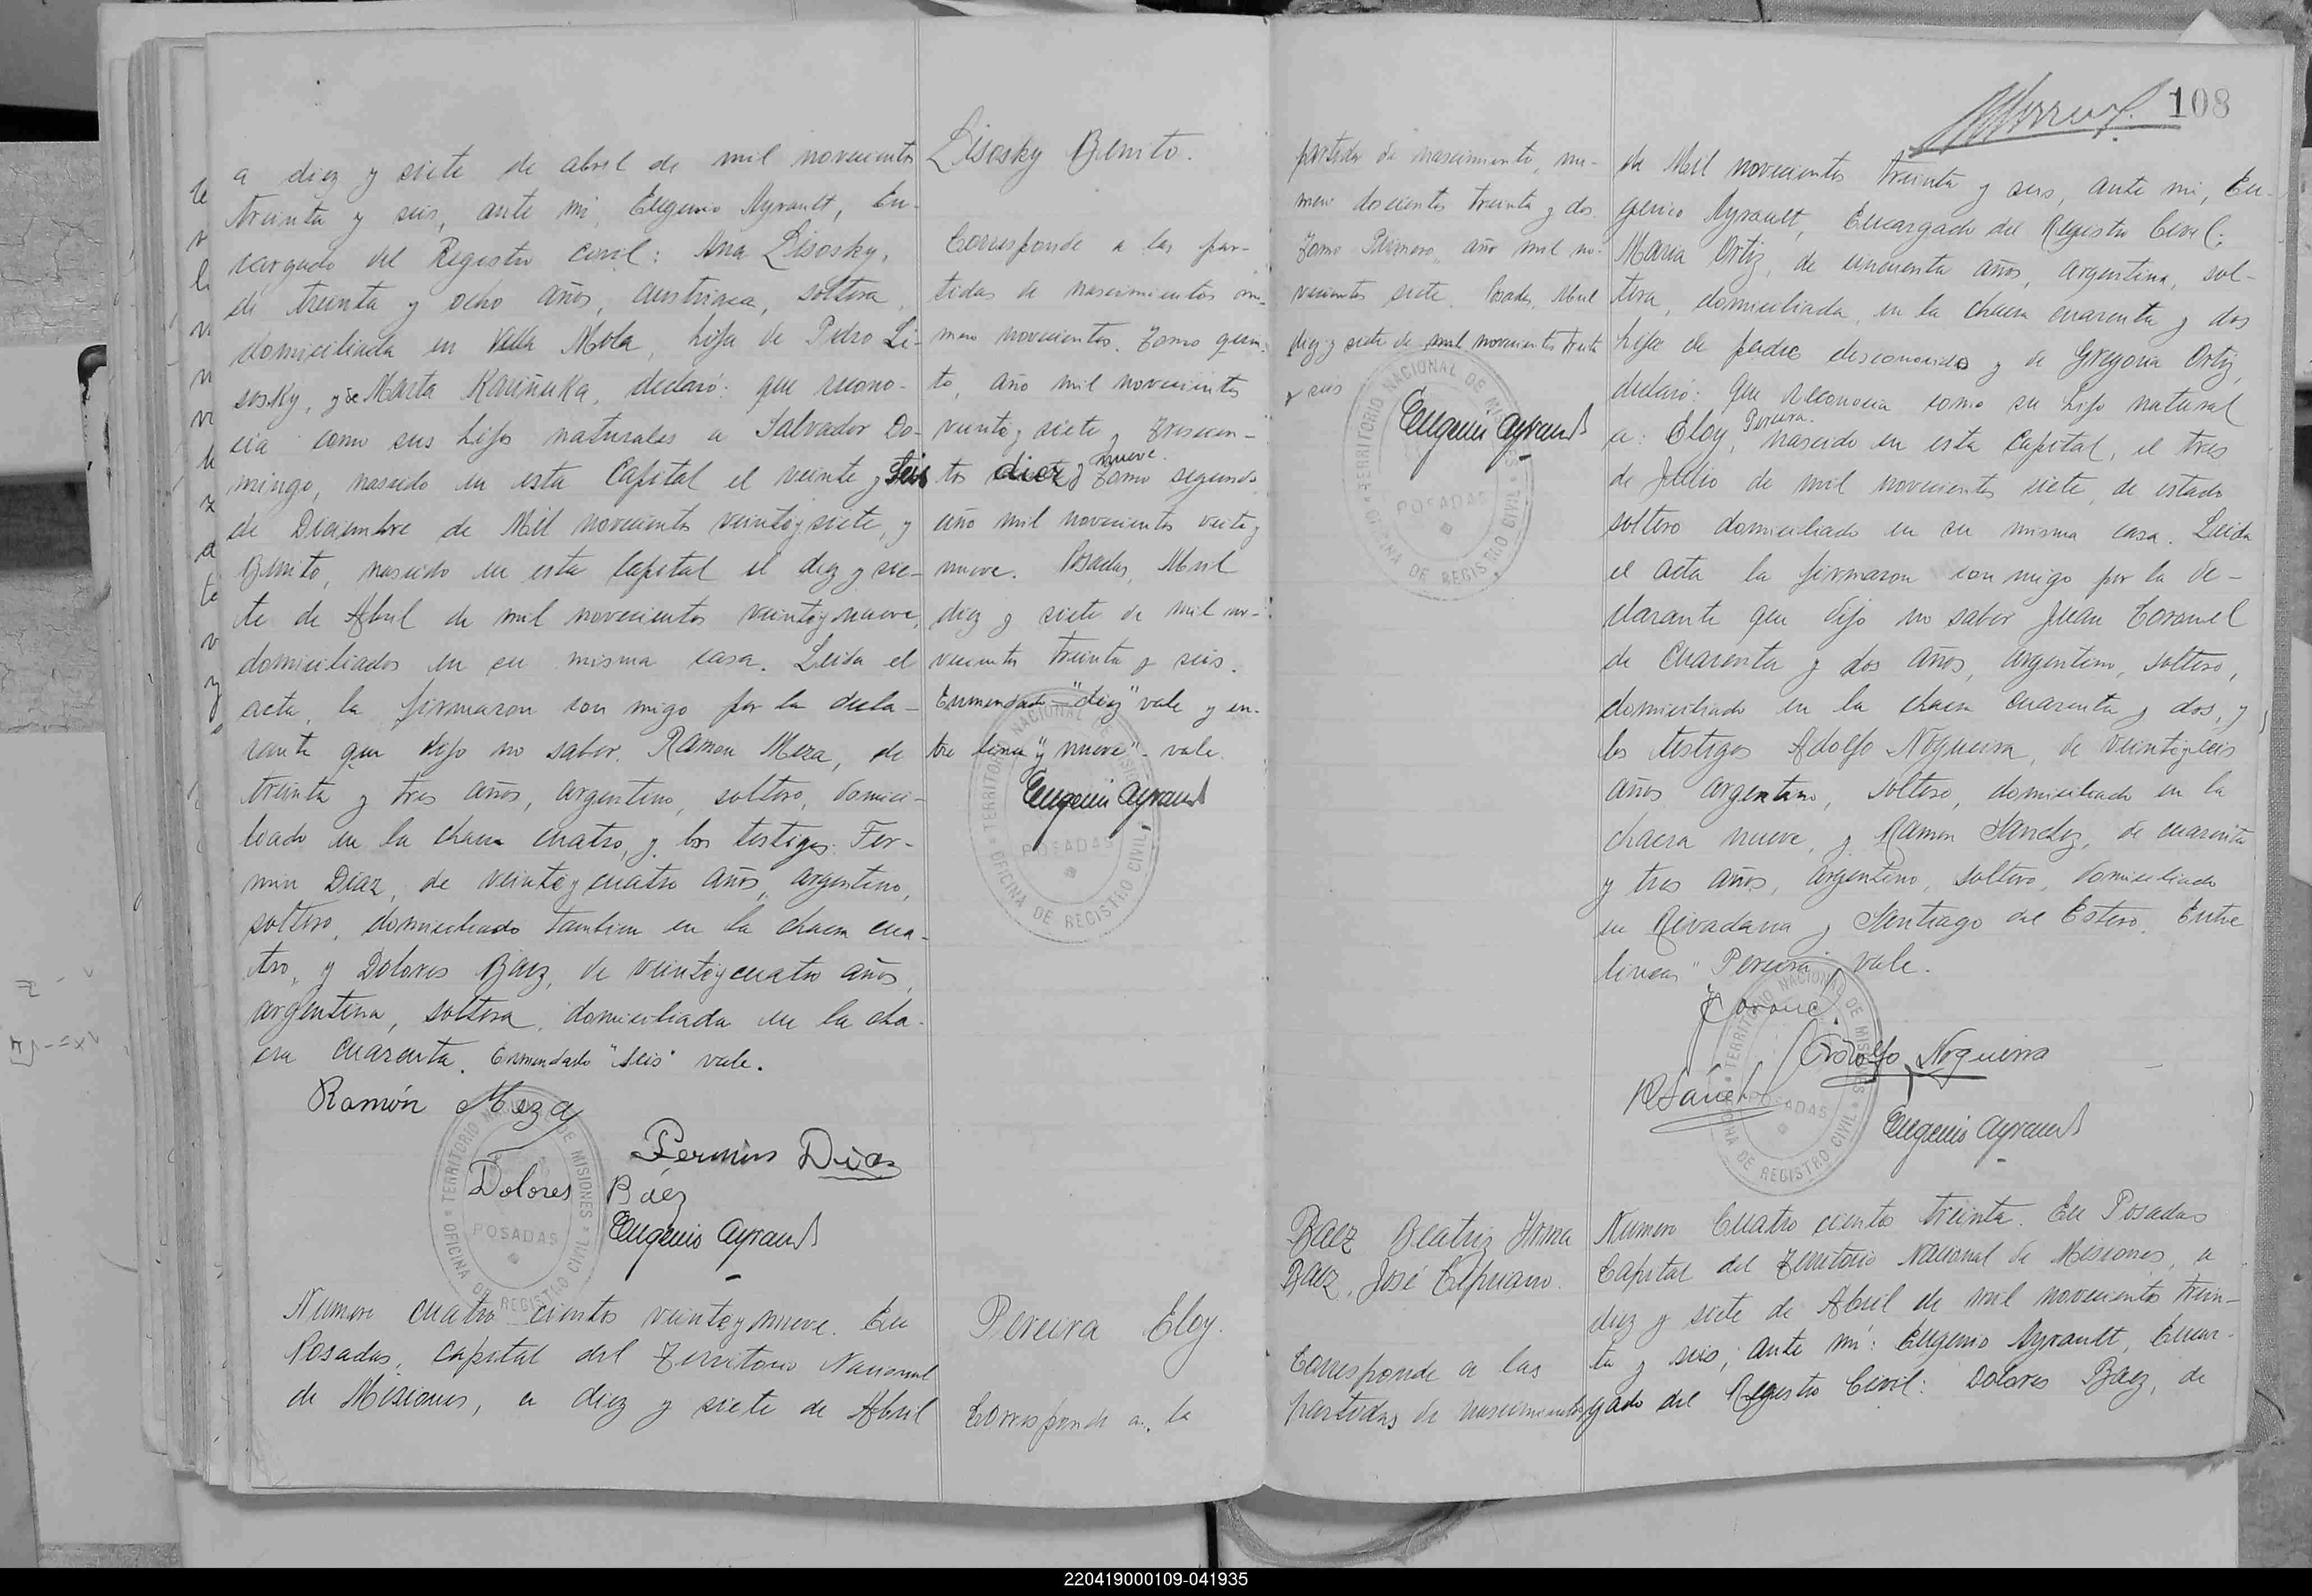 a diez y siete de abril de mil novecientos
treinta y seis, ante mi, Eugenio Ayrault, En-
cargado del Registro civil: Ana Lisosky,
de treinta y ocho años, austriaca, soltera,
domiciliada en Villa Mola, hija de Pedro Li-
sosky, y de Marta, declaró: que recono-
cia como sus hijos naturales a Salvador Do-
mingo, nascido en esta Capital el veinte y seis
de Diciembre de Mil novecientos veintey siete, y
Benito, nascido en esta Capital el diez y sie-
te de Abril de mil novecientos veintey nueve,
domiciliados en su misma casa. Leida el
acta, la firmaron con migo por la decla-
rante que dijo no saber, Ramon Meza, de
treinta y tres años, argentino, soltero, domici-
liado en la chacra cuatro, y los testigos: Fer-
min Diaz, de veintey cuatro años, argentino,
soltero, domiciliado tambien en la chacra cua-
tro, y Dolores Baez, de veintey cuatro años,
argentina, soltera, domiciliada en la cha-
cra cuarenta. Enmendado "seis" vale.
Ramón Meza
Fermin Diaz
Dolores Baez
Eugenio Ayrault
TERRITORIO NACIONAL DE MISIONES
POSADAS
OFICINA DE REGISTRO CIVIL
Numero cuatro cientos veintey nueve. En
Posadas, capital del Territorio Nacional
de Misiones, a diez y siete de Abril
Lisosky Benito.
Corresponde a las par-
tidas de nascimientos nu-
mero novecientos. Tomo quin-
to, año mil novecientos
veinte y siete y trescien-
tos diez y nueve. Tomo segundo
año mil novecientos veinte y
nueve. Posadas, Abril
diez y siete de mil no-
vecientos treinta y seis.
Enmendado "diez" vale y en-
tre linea "y nueve" - vale.
Eugenio Ayrault
TERRITORIO NACIONAL DE MISIONES
POSADAS
OFICINA DE REGISTRO CIVIL
Pereira Eloy.
Corresponde a la
partida de nascimiento, nu-
mero doscientos treinta y dos
Tomo Primero, año mil no-
vecientos siete. Posadas, Abril
diez y siete de mil novecientos treinta
y seis
Eugenio Ayrault
TERRITORIO NACIONAL DE MISIONES
POSADAS
OFICINA DE REGISTRO CIVIL
Baez Beatriz Irma
Baez, José Cipriano.
Corresponde a las
partidas de nascimientos
108
de Mil novecientos treinta y seis, ante mi, Eu-
genio Ayrault, Encargado del Registro Civil;
Maria Ortiz, de cincuenta años, argentina, sol-
tera, domiciliada en la chacra cuarenta y dos
hija de padre desconocido y de Gregoria Ortiz,
declaró: que reconocia como su hijo natural
a: Eloy, Pereira. nascido en esta Capital, el tres
de Julio de mil novecientos siete, de estado
soltero domiciliado en su misma casa. Leida
el acta la firmaron con migo por la de-
clarante que dijo no saber Juan Coronel
de cuarenta y dos años, argentino, soltero,
domiciliado en la chacra cuarenta y dos, y
los testigos Adolfo Nogueira, de veintey seis
años argentino, soltero, domiciliado en la
chacra nueve, y Ramon Sanchez, de cuarenta
y tres años, argentino, soltero, domiciliado
en Rivadavia y Santiago del Estero. Entre
lineas "Pereira" vale.
J Coronel
Adolfo Nogueira
R Sanch
Eugenio Ayrault
TERRITORIO NACIONAL DE MISIONES
POSADAS
OFICINA DE REGISTRO CIVIL
Numero Cuatro cientos treinta. En Posadas
Capital del Territorio Nacional de Misiones, a
diez y siete de Abril de mil novecientos trein-
ta y seis, ante mi: Eugenio Ayrault, Encar-
gado del Registro Civil: Dolores Baez, de
220419000109-041935